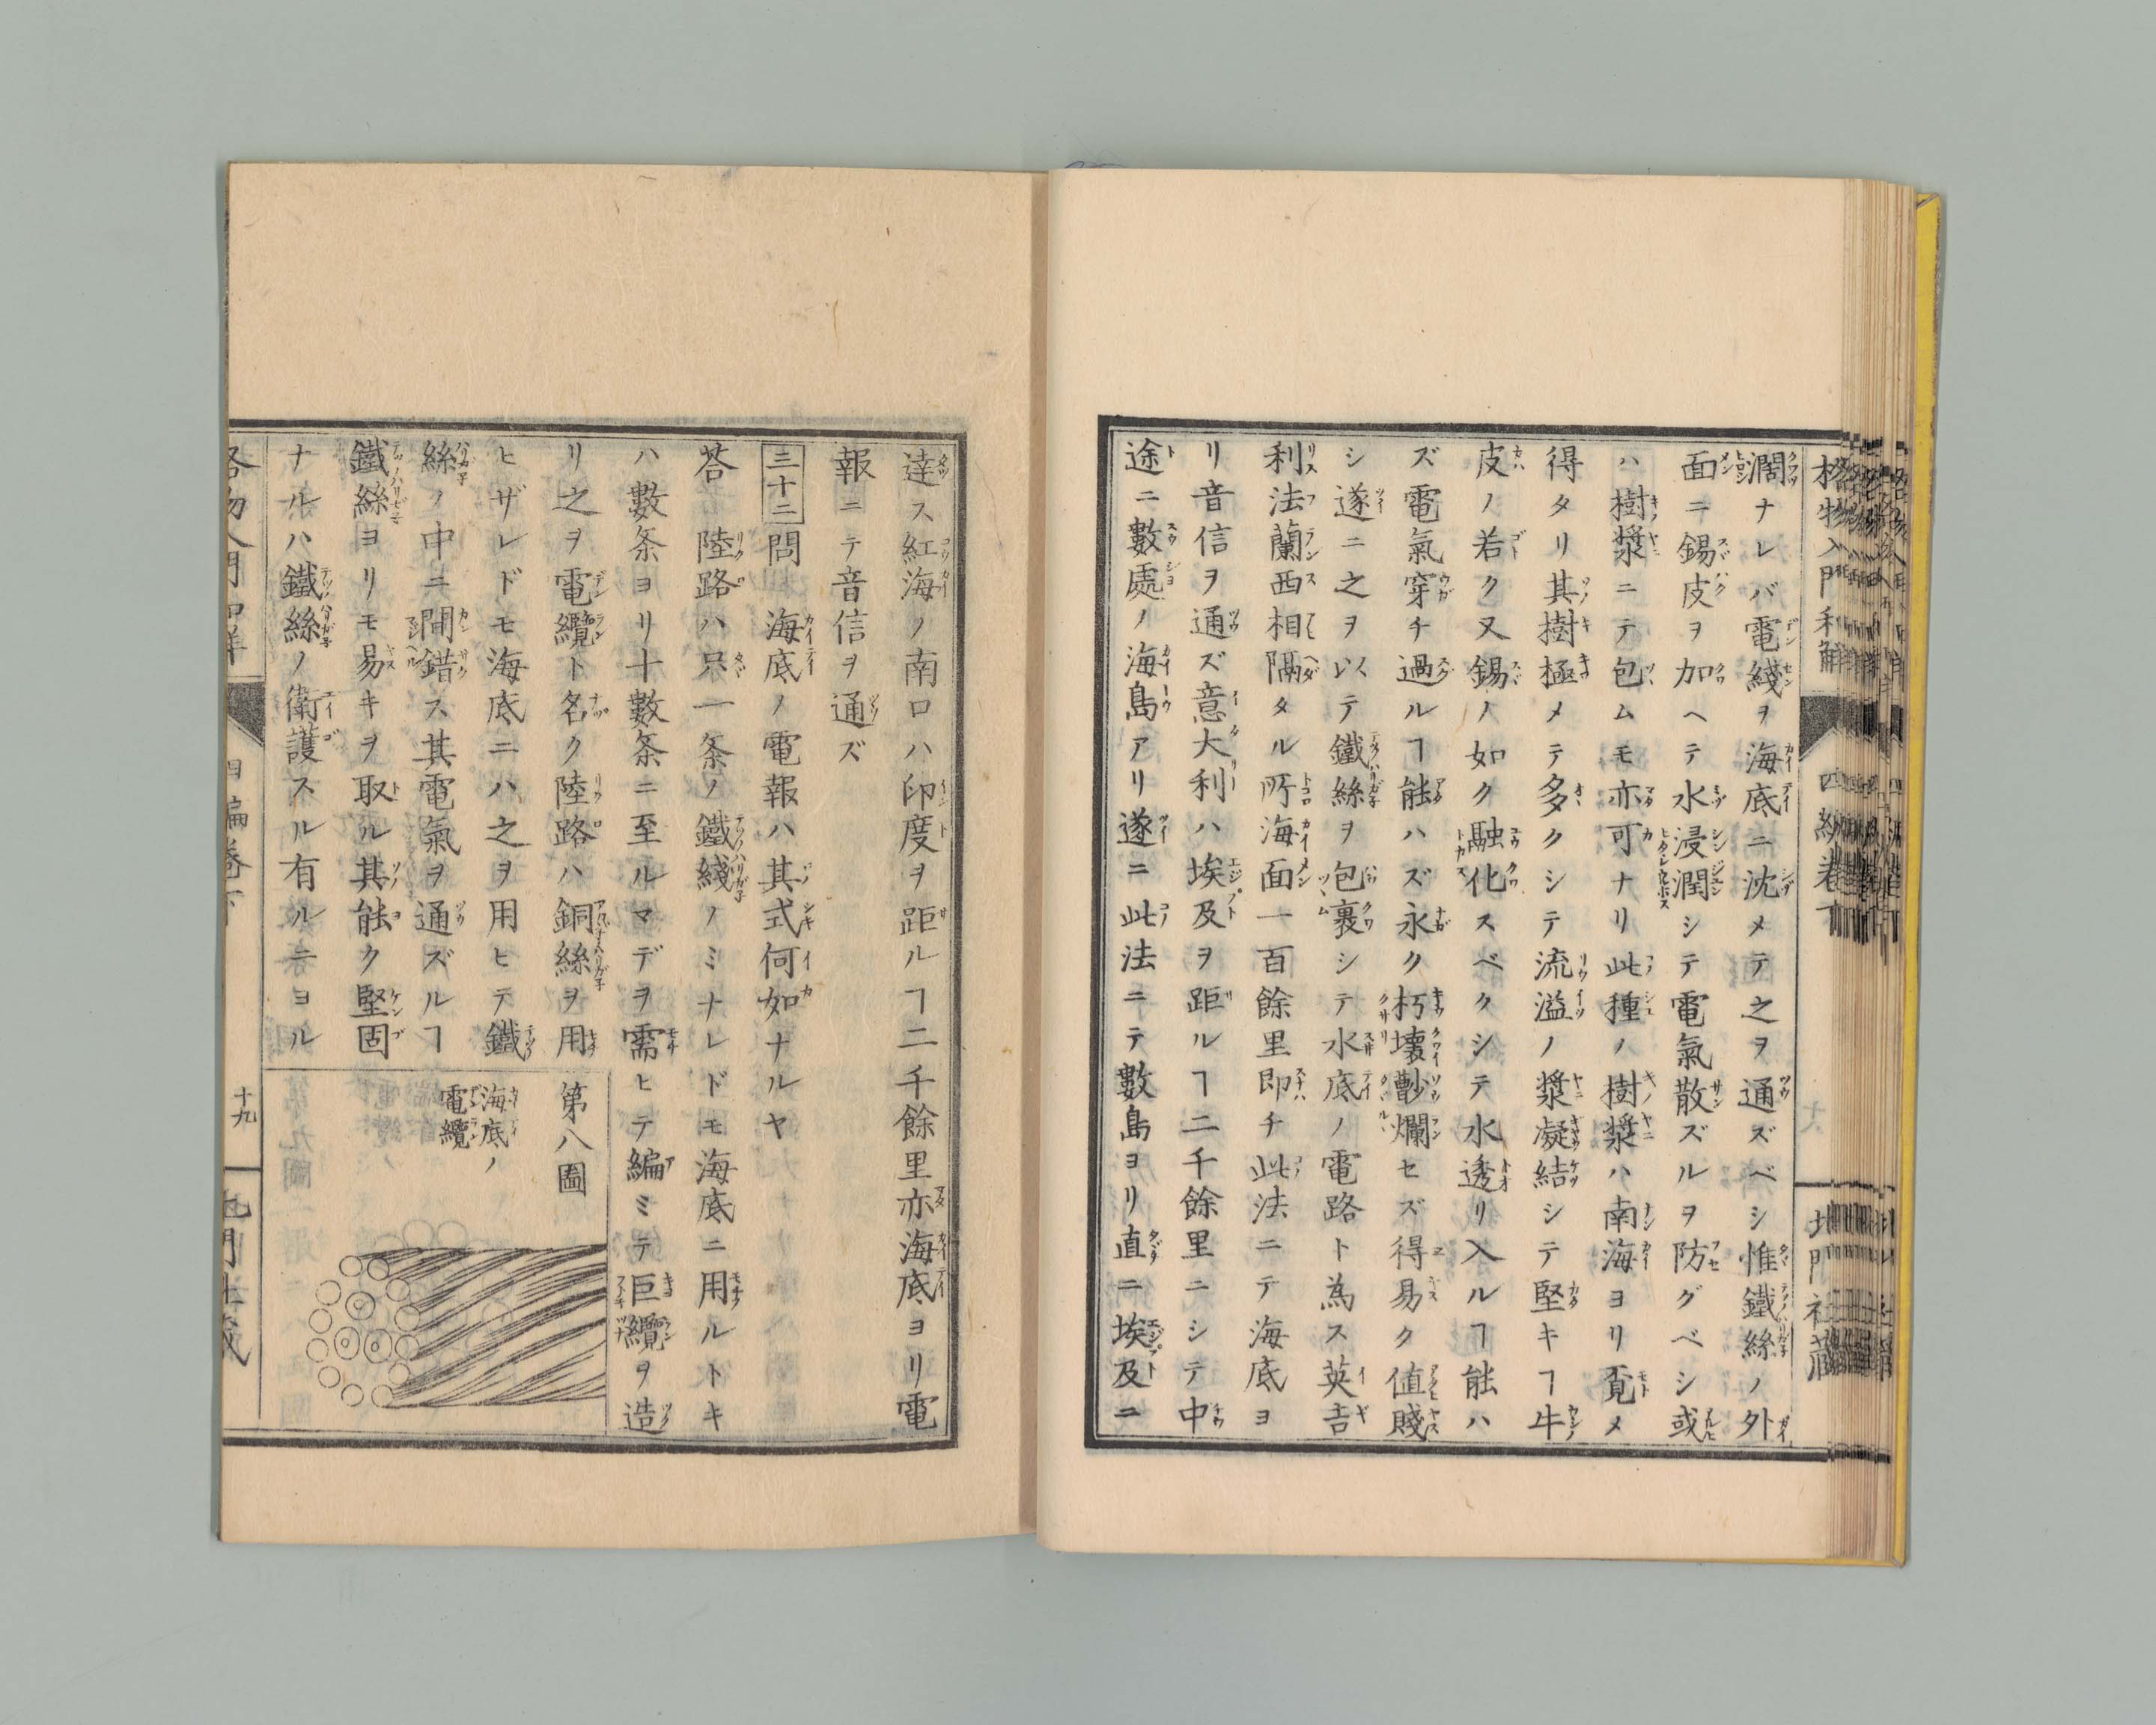 格物入門和解 四編巻下
濶ナレバ電綫ヲ海底ニ沈メテ之ヲ通ズベシ惟鐵絲ノ外
面ニ錫皮ヲ加ヘテ水浸潤シテ電氣散ズルヲ防グベシ或
ハ樹漿ニテ包ムモ亦可ナリ此種ノ樹漿ハ南海ヨリ覓メ
得タリ其樹極メテ多クシテ流溢ノ漿凝結シテ堅キヿ牛
皮ノ若ク又錫ノ如ク融化スベクシテ水透リ入ルヿ能ハ
ズ電氣穿チ過ルヿ能ハズ永ク朽壞黲爛セズ得易ク値賤
シ遂ニ之ヲ以テ鐵絲ヲ包裹シテ水底ノ電路ト為ス英吉
利法蘭西相隔タル所海面一百餘里即チ此法ニテ海底ヨ
リ音信ヲ通ズ意大利ハ埃及ヲ距ルヿ二千餘里ニシテ中
途ニ數處ノ海島アリ遂ニ此法ニテ數島ヨリ直ニ埃及ニ
達ス紅海ノ南口ハ印度ヲ距ルヿ二千餘里亦海底ヨリ電
報ニテ音信ヲ通ズ
三十二問 海底ノ電報ハ其式何如ナルヤ
荅 陸路ハ只一条ノ鐵綫ノミナレドモ海底ニ用ルトキ
ハ數条ヨリ十數条ニ至ルマデヲ需ヒテ編ミテ巨纜ヲ造
リ之ヲ電纜ト名ク陸路ハ銅絲ヲ用
ヒザレドモ海底ニハ之ヲ用ヒテ鐵
絲ノ中ニ間錯ス其電氣ヲ通ズルヿ
鐵絲ヨリモ易キヲ取ル其能ク堅固
ナルハ鐵絲ノ衛護スル有ルニヨル
第八圖
海底ノ
電纜
格物入門和解 四編巻下 十九